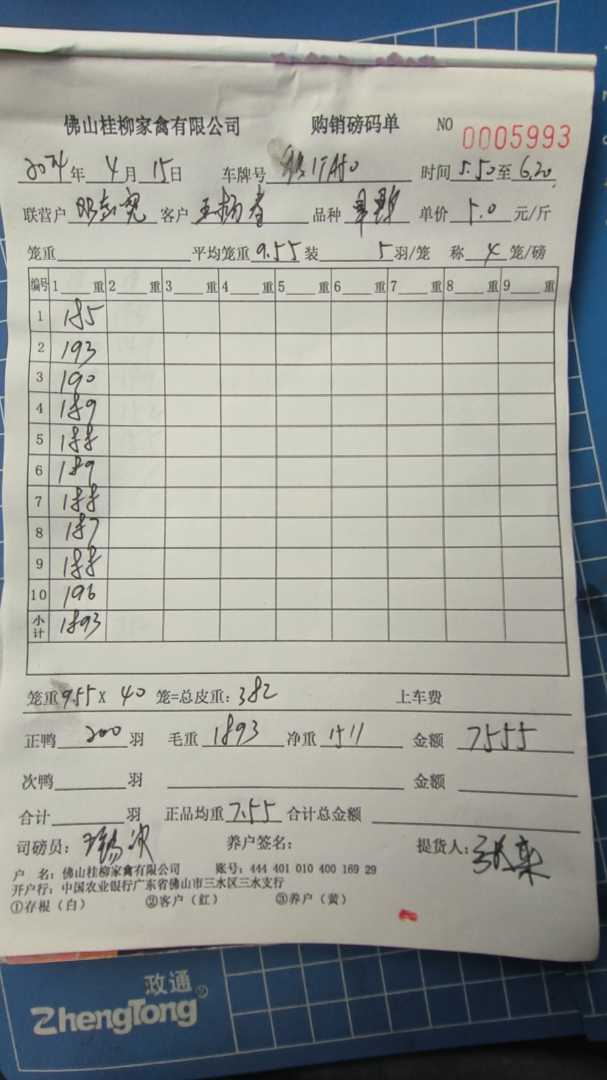 佛山桂柳家禽有限公司 购销磅码单 NO 0005993
2024年 4月 15日 车牌号 时间 5.50至 6.20
联营户 客户 品种 单价 5.0 元/斤
笼重 平均笼重 9.55 装 5 羽/笼 称 4 笼/磅
编号 1 重 2 重 3 重 4 重 5 重 6 重 7 重 8 重 9 重
1 185
2 193
3 190
4 189
5 188
6 189
7 188
8 187
9 188
10 196
小计 1893
笼重 9.55 X 40 笼=总皮重: 382 上车费
正鸭 200 羽 毛重 1893 净重 1511 金额 7555
次鸭 羽 金额
合计 羽 正品均重 7.55 合计总金额
司磅员: 养户签名: 提货人:
户 名: 佛山桂柳家禽有限公司 账号: 444 401 010 400 169 29
开户行: 中国农业银行广东省佛山市三水区三水支行
①存根（白） ②客户（红） ③养户（黄）
政通
ZhengTong®